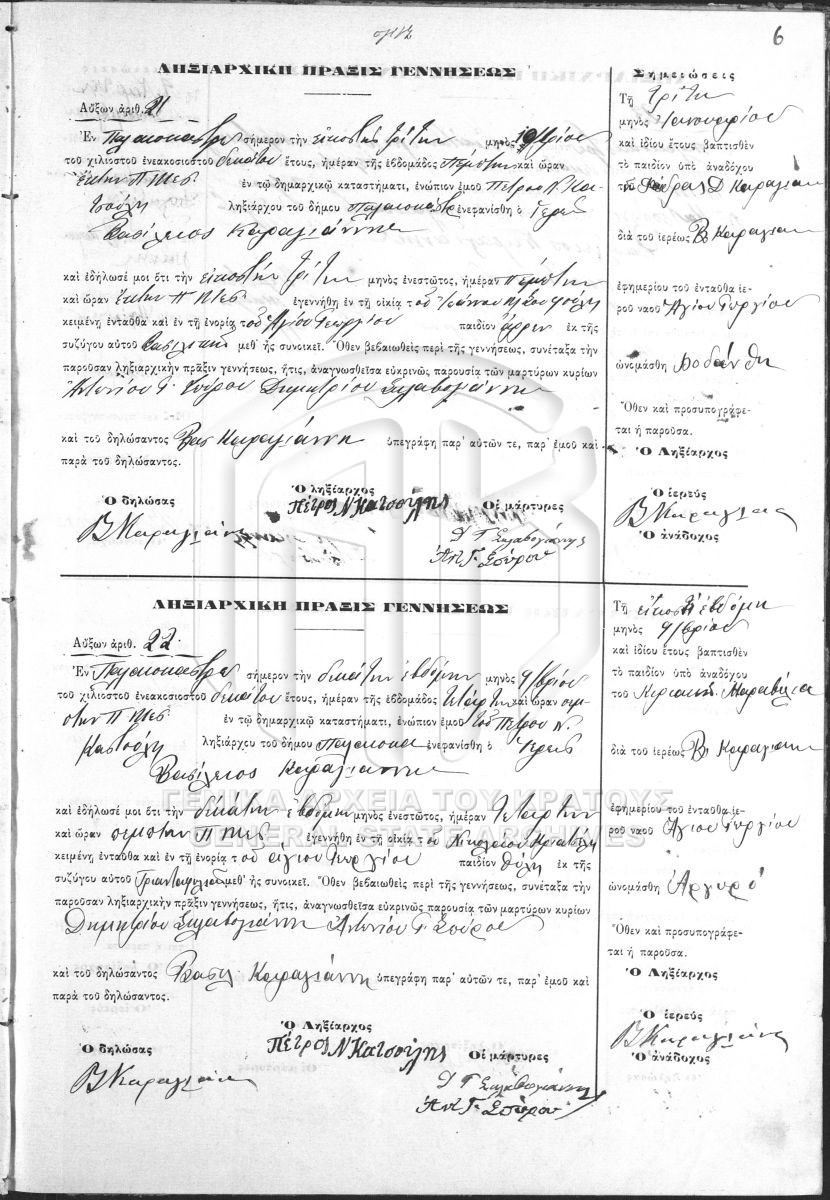 6
ΛΗΞΙΑΡΧΙΚΗ ΠΡΑΞΙΣ ΓΕΝΝΗΣΕΩΣ
Αὔξων ἀριθ. 21
Ἐν σήμερον τὴν εἰκοστὴν τρίτην μηνὸς
τοῦ χιλιοστοῦ ἐνεακοσιοστοῦ δεκάτου ἔτους, ἡμέραν τῆς ἑβδομάδος Πέμπτην καὶ ὥραν
ἕκτην Π Μες. ἐν τῷ δημαρχικῷ καταστήματι, ἐνώπιον ἐμοῦ Πέτρου Ν. Κα-
τσούλη ληξιάρχου τοῦ δήμου ἐνεφανίσθη ὁ ἱερεὺς
Βασίλειος Καραγιάννης
καὶ ἐδήλωσέ μοι ὅτι τὴν εἰκοστὴν τρίτην μηνὸς ἐνεστῶτος, ἡμέραν Πέμπτην
καὶ ὥραν ἕκτην Π Μες ἐγεννήθη ἐν τῇ οἰκίᾳ τοῦ Ἰωάννου
κειμένῃ ἐνταῦθα καὶ ἐν τῇ ἐνορίᾳ τοῦ Ἁγίου Γεωργίου παιδίον ἄρρεν ἐκ τῆς
συζύγου αὐτοῦ Βασιλικῆς μεθ᾽ ἧς συνοικεῖ. Ὅθεν βεβαιωθεὶς περὶ τῆς γεννήσεως, συνέταξα τὴν
παροῦσαν ληξιαρχικὴν πρᾶξιν γεννήσεως, ἥτις, ἀναγνωσθεῖσα εὐκρινῶς παρουσίᾳ τῶν μαρτύρων κυρίων
Ἀντωνίου Γ. Σπύρου Δημητρίου
καὶ τοῦ δηλώσαντος Βασ Καραγιάννη ὑπεγράφη παρ᾽ αὐτῶν τε, παρ᾽ ἐμοῦ καὶ
παρὰ τοῦ δηλώσαντος.
Ὁ δηλώσας
Β Καραγιάννης
Ὁ ληξίαρχος
Πέτρος Ν Κατσούλης
Οἱ μάρτυρες
Δ Γ
Ἀντ Γ. Σπύρου
Σημειώσεις
Τῇ Τρίτῃ
μηνὸς Ἰανουαρίου
καὶ ἰδίου ἔτους βαπτισθὲν
τὸ παιδίον ὑπὸ ἀναδόχου
Δ Καραγιαν
διὰ τοῦ ἱερέως Β. Καραγιαν
ἐφημερίου τοῦ ἐνταῦθα ἱε-
ροῦ ναοῦ Ἁγίου Γεωργίου
ὠνομάσθη
Ὅθεν καὶ προσυπογράφε-
ται ἡ παροῦσα.
Ὁ Ληξίαρχος
Ὁ ἱερεὺς
Β Καραγιαν
Ὁ ἀνάδοχος
ΛΗΞΙΑΡΧΙΚΗ ΠΡΑΞΙΣ ΓΕΝΝΗΣΕΩΣ
Αὔξων ἀριθ. 22.
Ἐν σήμερον τὴν δεκάτην ἑβδόμην μηνὸς 9/βρίου
τοῦ χιλιοστοῦ ἐνεακοσιοστοῦ δεκάτου ἔτους, ἡμέραν τῆς ἑβδομάδος Τετάρτην καὶ ὥραν πεμ-
πτην Π Μες. ἐν τῷ δημαρχικῷ καταστήματι, ἐνώπιον ἐμοῦ τοῦ Πέτρου Ν.
Κατσούλη ληξιάρχου τοῦ δήμου ἐνεφανίσθη ὁ ἱερεὺς
Βασίλειος Καραγιαννης
καὶ ἐδήλωσέ μοι ὅτι τὴν δεκάτην ἑβδόμην μηνὸς ἐνεστῶτος, ἡμέραν Τετάρτην
καὶ ὥραν πεμπτην Π Μες ἐγεννήθη ἐν τῇ οἰκίᾳ τοῦ Νικολάου
κειμένῃ ἐνταῦθα καὶ ἐν τῇ ἐνορίᾳ τοῦ ἁγίου Γεωργίου παιδίον θῆλυ ἐκ τῆς
συζύγου αὐτοῦ μεθ᾽ ἧς συνοικεῖ. Ὅθεν βεβαιωθεὶς περὶ τῆς γεννήσεως, συνέταξα τὴν
παροῦσαν ληξιαρχικὴν πρᾶξιν γεννήσεως, ἥτις, ἀναγνωσθεῖσα εὐκρινῶς παρουσίᾳ τῶν μαρτύρων κυρίων
Δημητρίου Ἀντωνίου Γ. Σπύρου
καὶ τοῦ δηλώσαντος Βασιλ Καραγιάννη ὑπεγράφη παρ᾽ αὐτῶν τε, παρ᾽ ἐμοῦ καὶ
παρὰ τοῦ δηλώσαντος.
Ὁ δηλώσας
Β Καραγιάννης
Ὁ Ληξίαρχος
Πέτρος Ν Κατσούλης
Οἱ μάρτυρες
Δ Γ
Ἀντ Γ. Σπύρου
Τῇ εἰκοστῇ ἑβδόμῃ
μηνὸς 9/βρίου
καὶ ἰδίου ἔτους βαπτισθὲν
τὸ παιδίον ὑπὸ ἀναδόχου
τοῦ
διὰ τοῦ ἱερέως Β. Καραγιαννη
ἐφημερίου τοῦ ἐνταῦθα ἱε-
ροῦ ναοῦ Ἁγίου Γεωργίου
ὠνομάσθη Ἀργυρὸ
Ὅθεν καὶ προσυπογράφε-
ται ἡ παροῦσα.
Ὁ Ληξίαρχος
Ὁ ἱερεὺς
Β Καραγιάννης
Ὁ ἀνάδοχος
ΓΕΝΙΚΑ ΑΡΧΕΙΑ ΤΟΥ ΚΡΑΤΟΥΣ
GENERAL STATE ARCHIVES